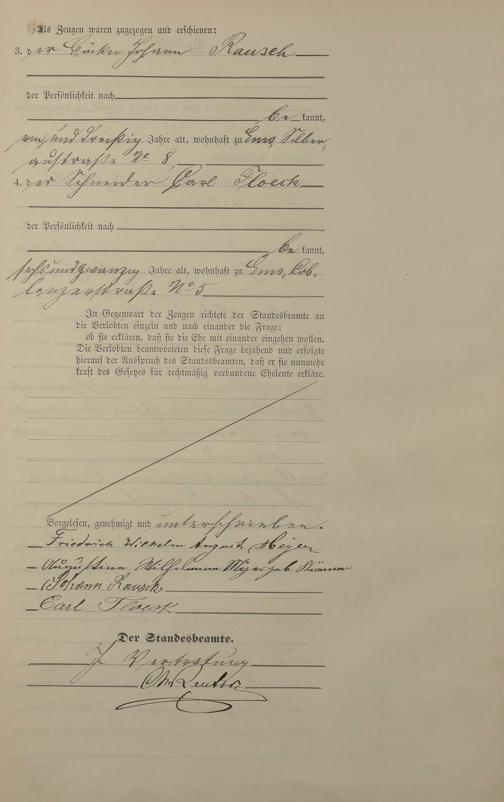 Als Zeugen waren zugezogen und erschienen:
3. der Bäcker Johann Rausch
der Persönlichkeit nach
be kannt,
und dreißig Jahre alt, wohnhaft zu Ems, Silber-
austraße No 8
4. der Schneider Carl Floeck
der Persönlichkeit nach
be kannt,
sechsundzwanzig Jahre alt, wohnhaft zu Ems, Cob-
lenzerstraße No 5
In Gegenwart der Zeugen richtete der Standesbeamte an
die Verlobten einzeln und nach einander die Frage:
ob sie erklären, daß sie die Ehe mit einander eingehen wollen.
Die Verlobten beantworteten diese Frage bejahend und erfolgte
hierauf der Ausspruch des Standesbeamten, daß er sie nunmehr
kraft des Gesetzes für rechtmäßig verbundene Eheleute erkläre.
Vorgelesen, genehmigt und unterschrieben.
Friedrich Wilhelm August Meyer
Augustina Wilhelmina Meyer geb
Johann Rausch
Carl Floeck
Der Standesbeamte.
In Vertretung